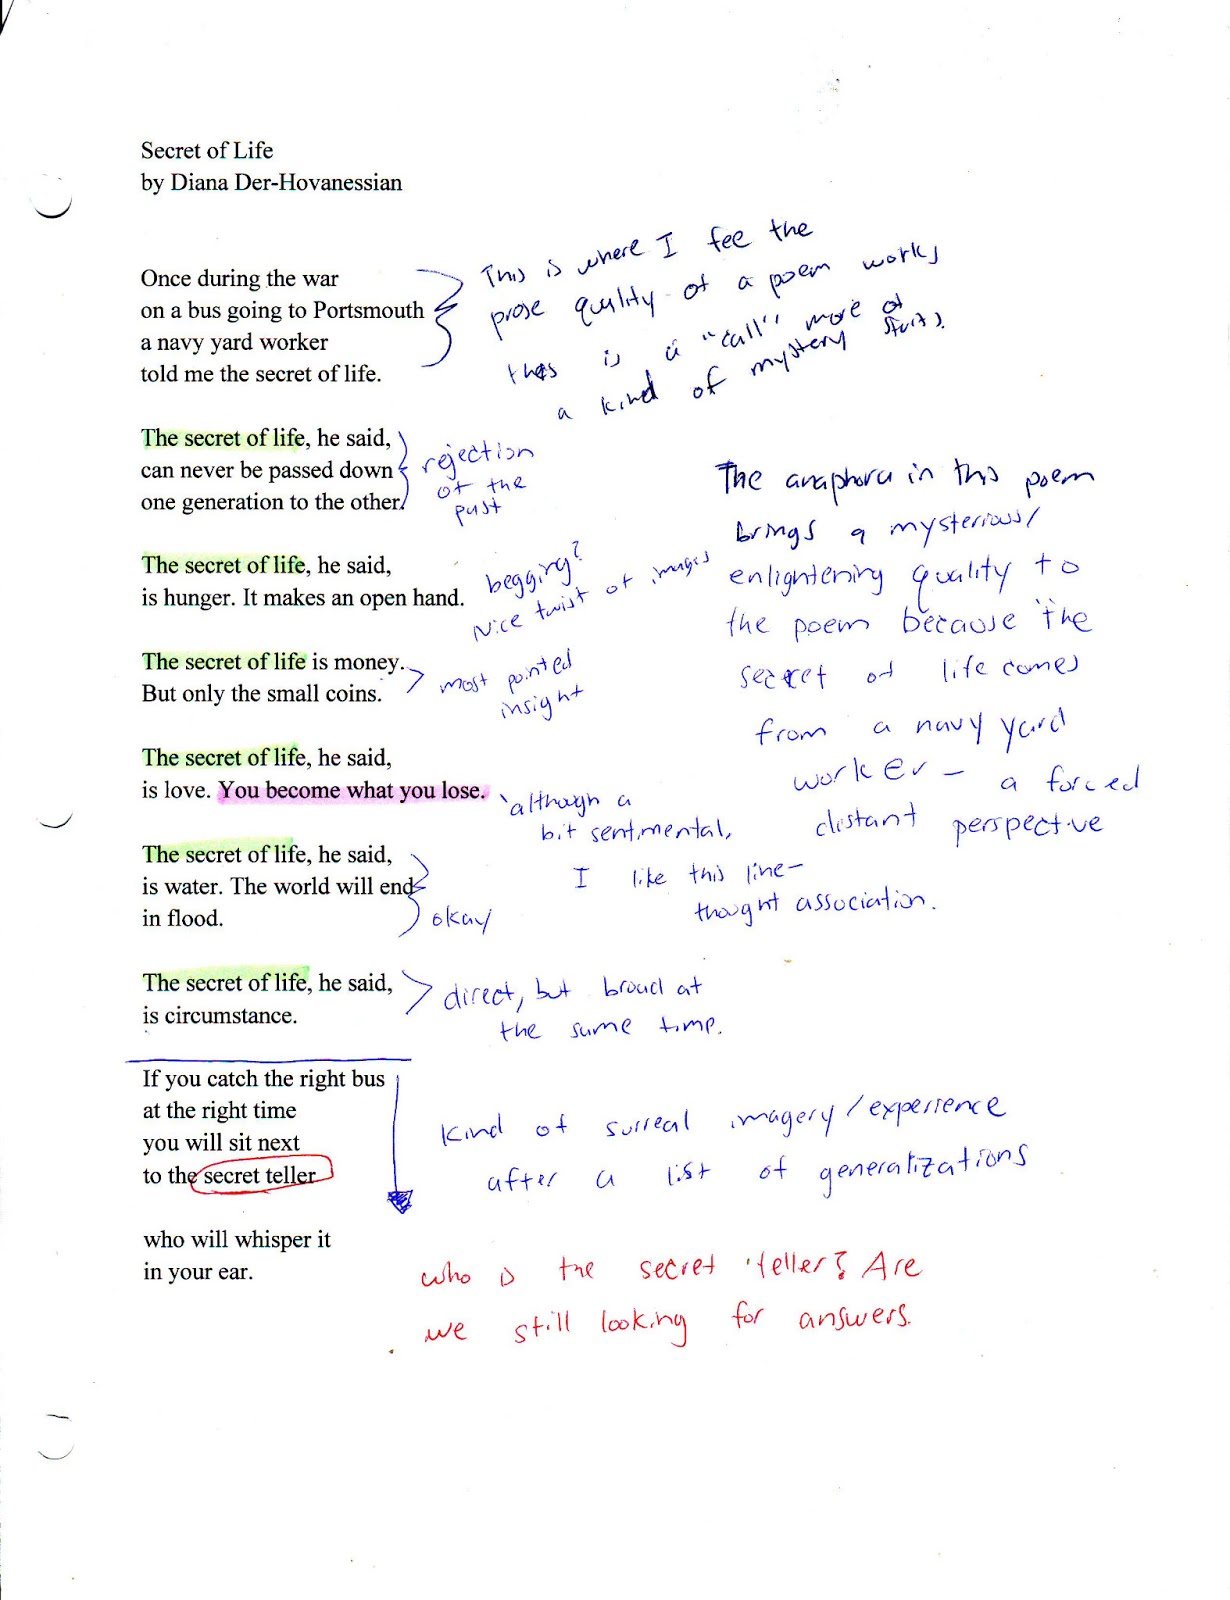 Secret of Life
by Diana Der-Hovanessian
Once during the war
on a bus going to Portsmouth
a navy yard worker
told me the secret of life.
This is where I fee the
prose quality of a poem works
this is a "call" more of
a kind of mystery starts.
The secret of life, he said,
can never be passed down
one generation to the other.
rejection
of the
past
The secret of life, he said,
is hunger. It makes an open hand.
begging?
Nice twist of images
The secret of life is money.
But only the small coins.
most pointed
insight
The secret of life, he said,
is love. You become what you lose.
although a
bit sentimental,
I like this line-
thought association.
The anaphora in this poem
brings a mysterious/
enlightening quality to
the poem because the
secret of life comes
from a navy yard
worker – a forced
distant perspective
The secret of life, he said,
is water. The world will end
in flood.
okay
The secret of life, he said,
is circumstance.
direct, but broad at
the same time.
If you catch the right bus
at the right time
you will sit next
to the secret teller
Kind of surreal imagery/experience
after a list of generalizations
who will whisper it
in your ear.
who is the secret teller? Are
we still looking for answers.